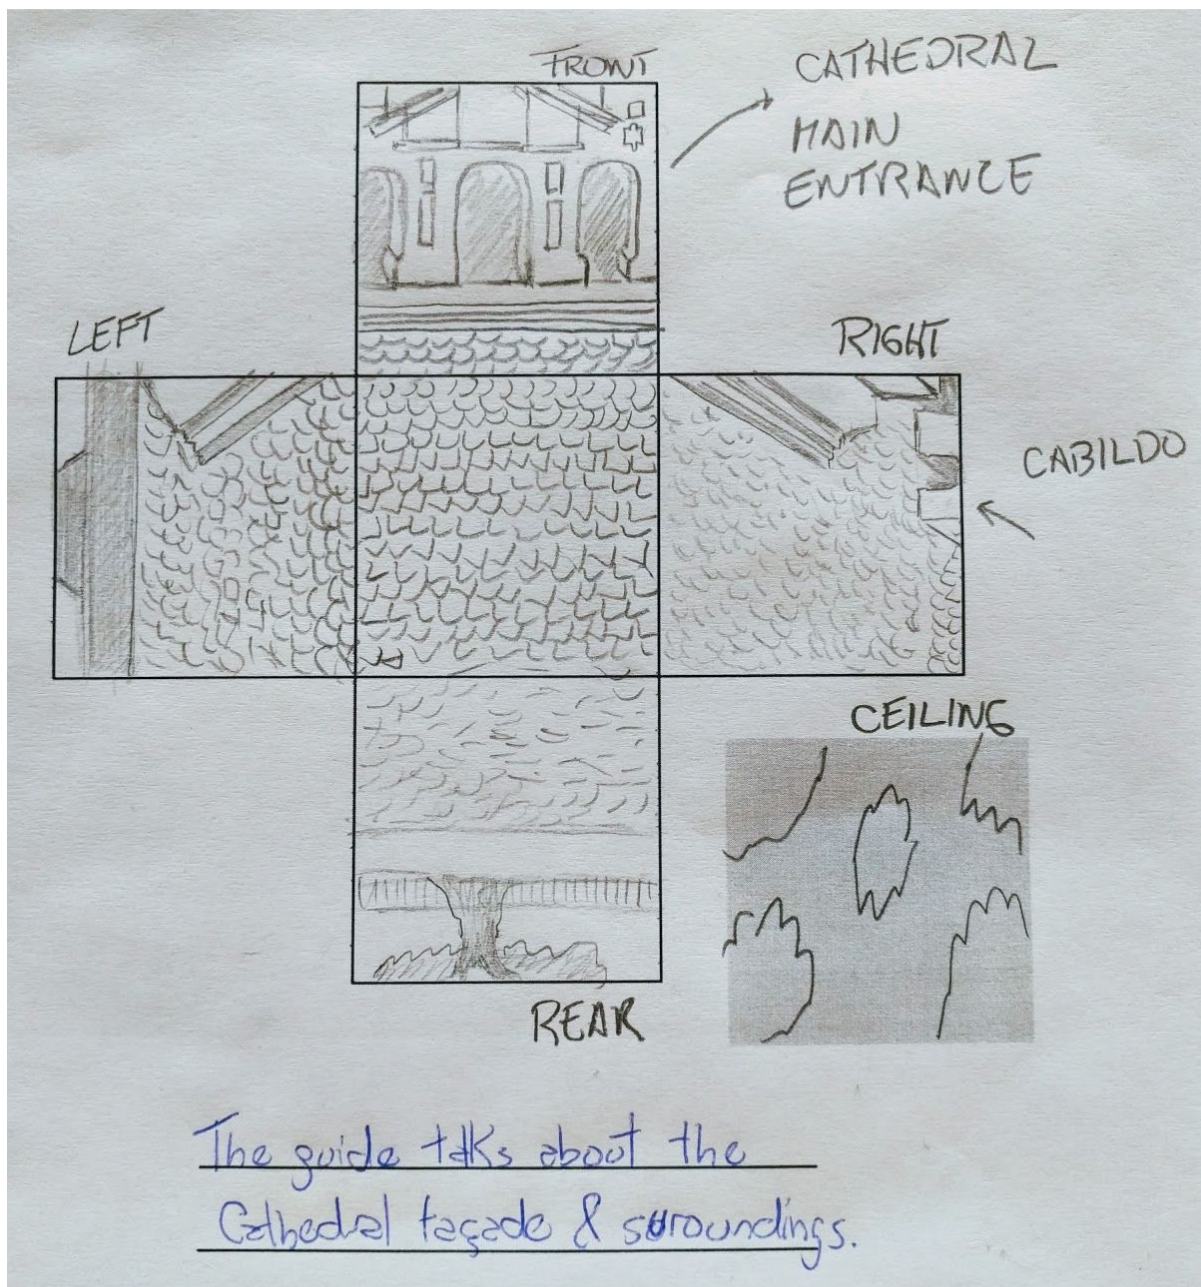 FRONT
CATHEDRAL
MAIN
ENTRANCE
LEFT
RIGHT
CABILDO
CEILING
REAR
The guide talks about the
Cathedral façade & suroundings.